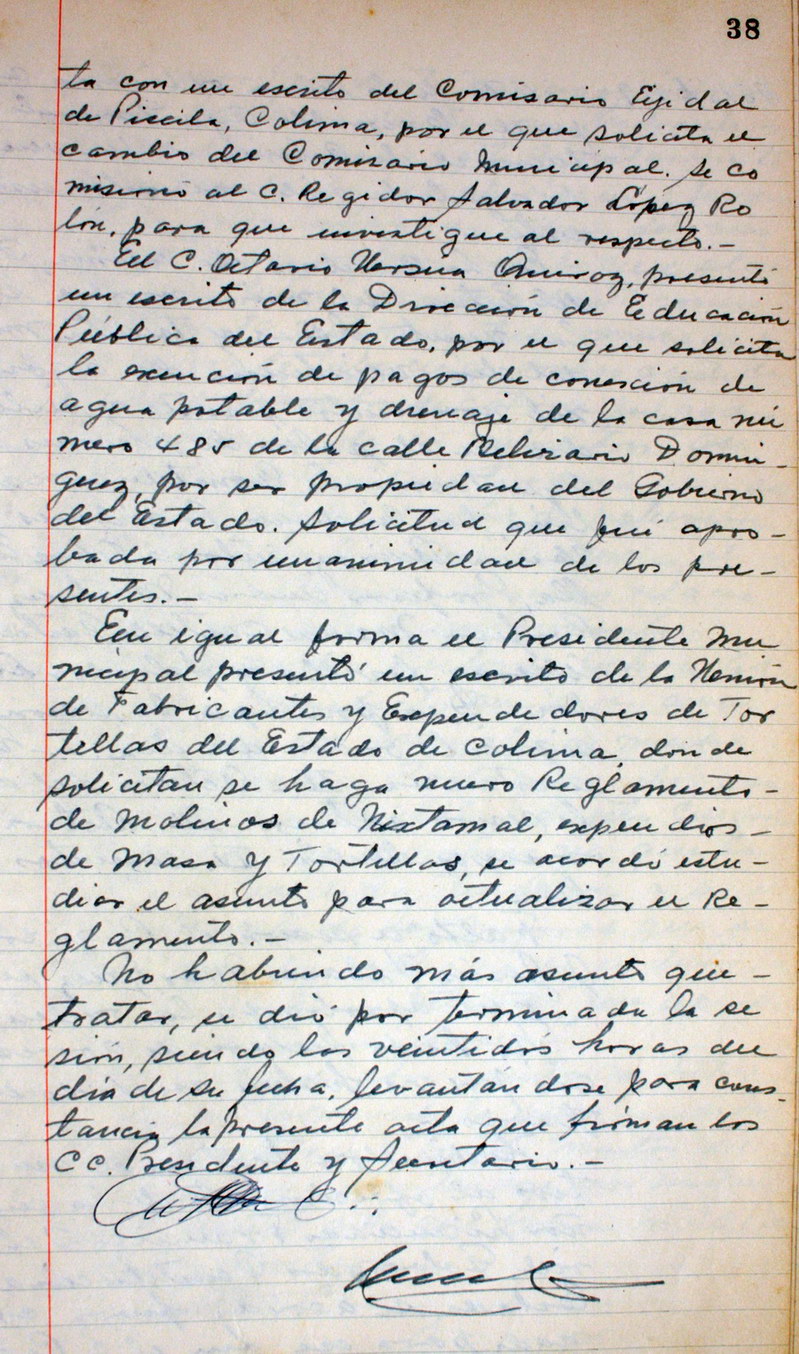 38
ta con un escrito del Comisario Ejidal
de Piscila, Colima, por el que solicita el
cambio del Comisario Municipal. Se co
misionó al C. Regidor Salvador López Ro
lon, para que investigue al respecto.-
El C. Octavio Ursúa Quiroz, presentó
un escrito de la Dirección de Educación
Pública del Estado, por el que solicita
la exención de pagos de conexión de
agua potable y drenaje de la casa nú
mero 485 de la calle Belisario Domin-
guez, por ser propiedad del Gobierno
del Estado. Solicitud que fué apro-
bada por unanimidad de los pre-
sentes.-
En igual forma el Presidente Mu
nicipal presentó un escrito de la Unión
de Fabricantes y Expendedores de Tor
tillas del Estado de Colima, donde
solicitan se haga nuevo Reglamento-
de Molinos de Nixtamal, expendios-
de Masa y Tortillas, se acordó estu-
diar el asunto para actualizar el Re-
glamento.-
No habiendo más asunto que-
tratar, se dió por terminada la se
sión, siendo las veintidós horas del
día de su fecha, levantándose para cons-
tancia la presente acta que firman los
CC. Presidente y Secretario.-